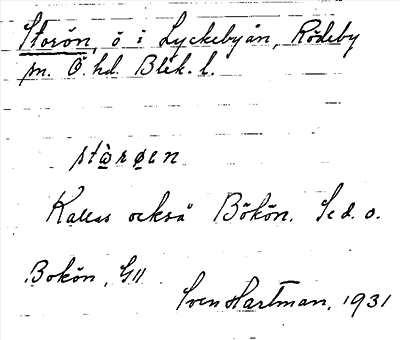 Storön, ö i Lyckebyån, Rödeby
sn. Ö. hd. Blek. l.
stàrøen
Kallas också Bökön. Se d. o.
Bokön, G11
Sven Hartman, 1931